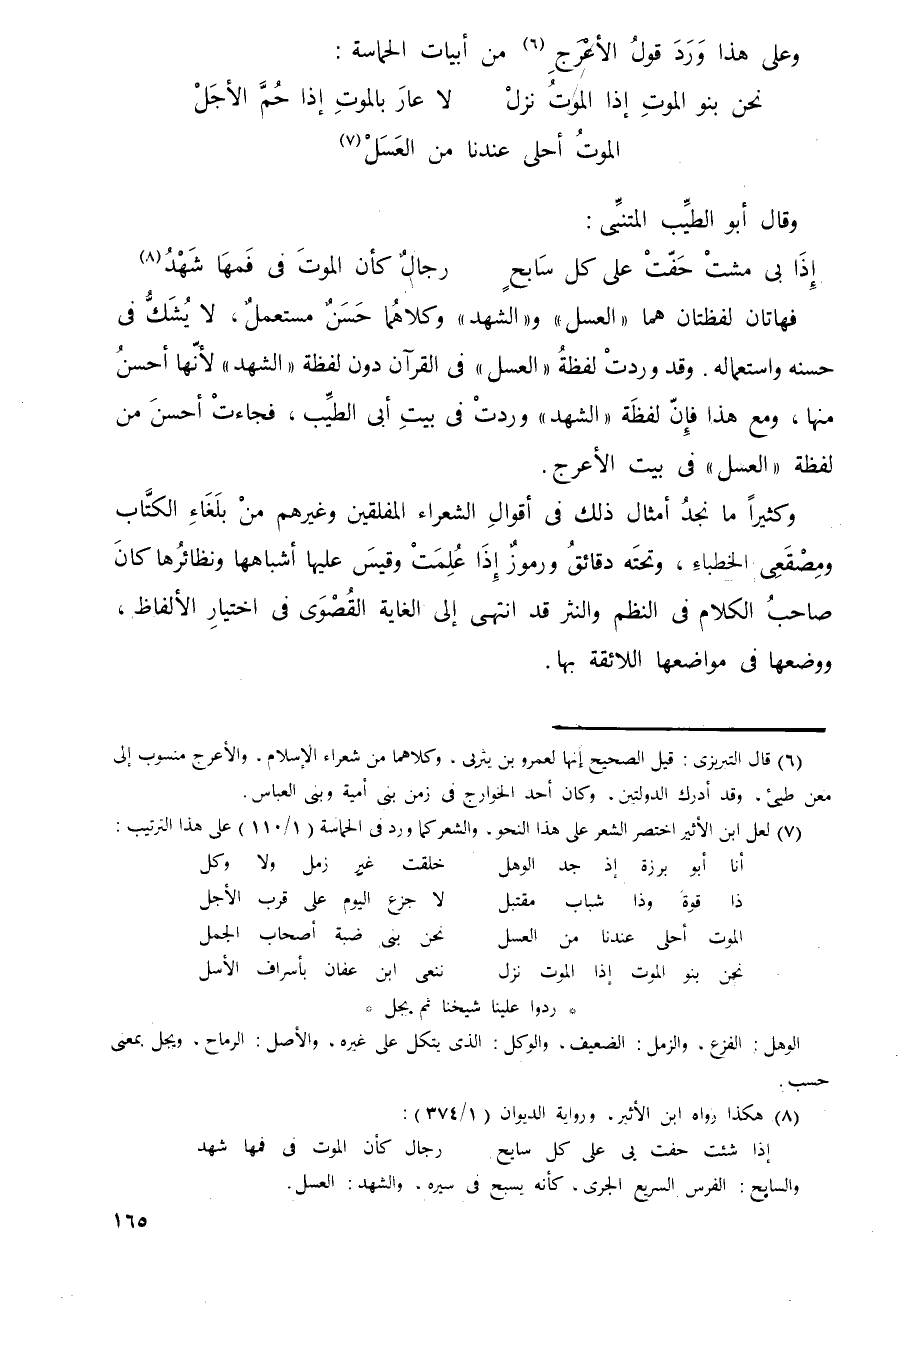 وعلى هذا وَرَدَ قولُ الأعْرَجِ (٦) من أبيات الحماسة :
نحن بنو الموتِ إذا الموتُ نزلْ لا عارَ بالموتِ إذا حُمَّ الأجَلْ
الموتُ أحلى عندنا من العَسَلْ (٧)
وقال أبو الطيِّب المتنبِّى :
إِذَا بى مشتْ حَفّتْ على كل سَابحٍ رجالٌ كأن الموتَ فى فَمهَا شَهْدُ (٨)
فهاتان لفظتان هما «العسل» و«الشهد» وكلاهُما حَسَنٌ مستعملٌ ، لا يُشَكُّ فى
حسنه واستعماله . وقد وردتْ لفظةُ «العسل» فى القرآن دون لفظة «الشهد» لأنّها أحسنُ
منها ، ومع هذا فإِنّ لفظَة «الشهد» وردتْ فى بيتِ أبى الطيِّب ، فجاءتْ أحسنَ من
لفظة «العسل» فى بيت الأعرج .
وكثيراً ما نجدُ أمثال ذلك فى أقوالِ الشعراء المفلقين وغيرهم منْ بلَغَاءِ الكتَّاب
ومِصْقَعِى الخطباء ، وتحتَه دقائقُ ورموزٌ إِذَا عُلِمَتْ وقيسَ عليها أشباهها ونظائرُها كانَ
صاحبُ الكلام فى النظم والنثر قد انتهى إلى الغاية القُصْوَى فى اختيارِ الألفاظ ،
ووضعها فى مواضعها اللائقة بها .
(٦) قال التبريزى : قيل الصحيح إنها لعمرو بن يثربى . وكلاهما من شعراء الإسلام . والأعرج منسوب إلى
معن طيئ . وقد أدرك الدولتين . وكان أحد الخوارج فى زمن بنى أمية وبنى العباس .
(٧) لعل ابن الأثير اختصر الشعر على هذا النحو . والشعر كما ورد فى الحماسة ( ١/١١٠ ) على هذا الترتيب :
أنا أبو برزة إذ جد الوهل خلقت غير زمل ولا وكل
ذا قوة وذا شباب مقتبل لا جزع اليوم على قرب الأجل
الموت أحلى عندنا من العسل نحن بنى ضبة أصحاب الجمل
نحن بنو الموت إذا الموت نزل ننعى ابن عفان بأسراف الأسل
* ردوا علينا شيخنا ثم بجل *
الوهل : الفزع . والزمل : الضعيف . والوكل : الذى يتكل على غيره . والأصل : الرماح . وبجل بمعنى
حسب .
(٨) هكذا رواه ابن الأثير . ورواية الديوان ( ١/٣٧٤ ) :
إذا شئت حفت بى على كل سابح رجال كأن الموت فى فمها شهد
والسابح : الفرس السريع الجرى . كأنه يسبح فى سيره . والشهد : العسل .
١٦٥